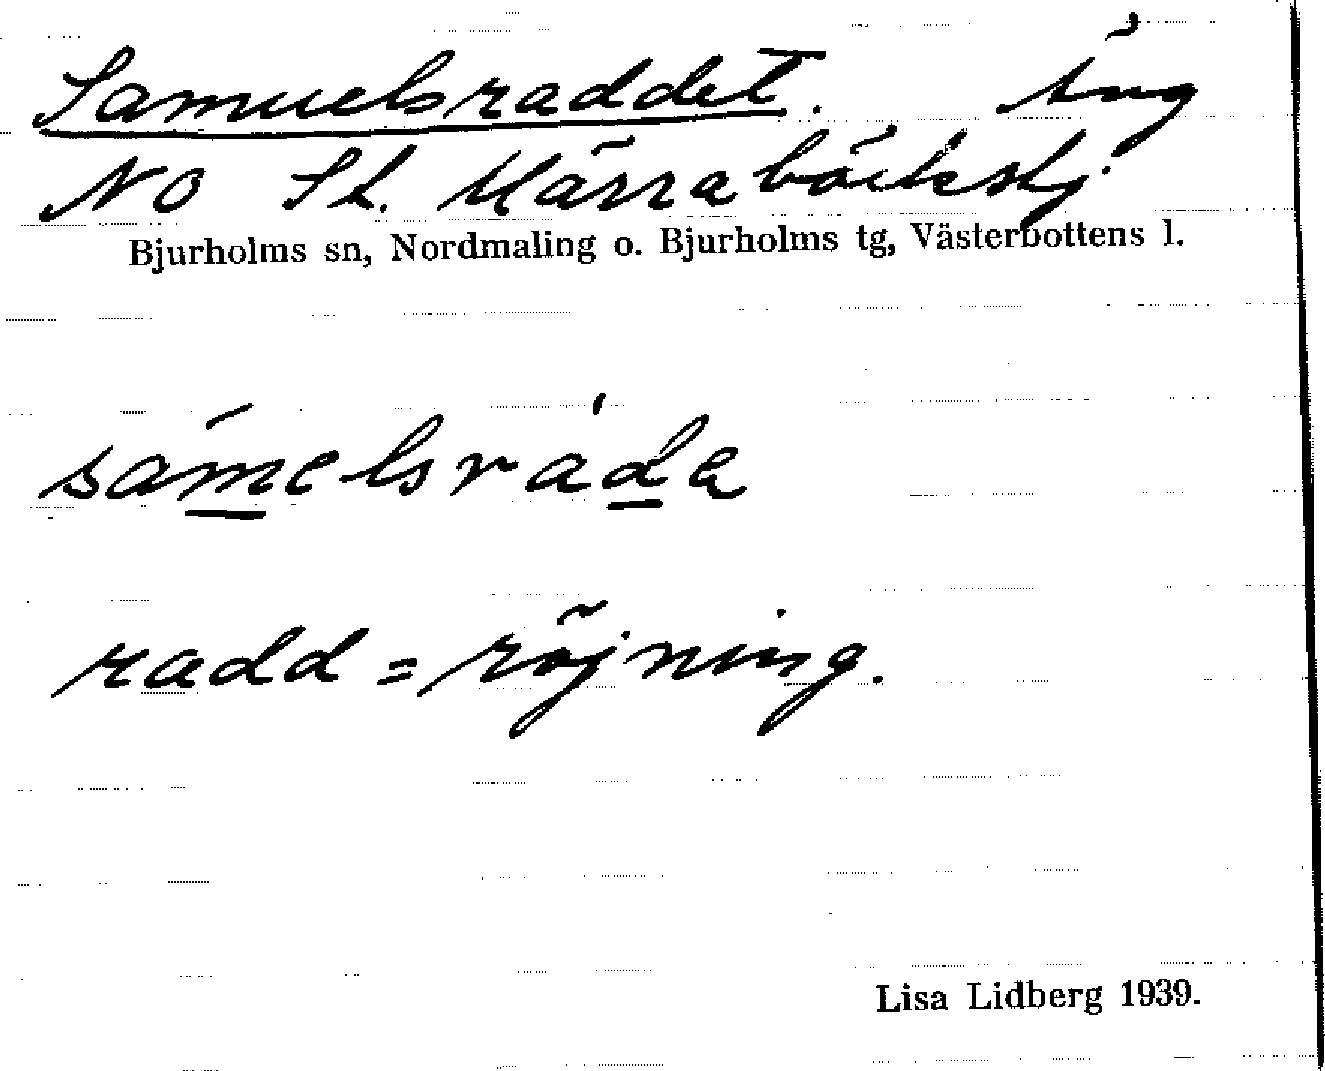 Samuelsraddet. Äng
NO St. Kärraböletsj.
Bjurholms sn, Nordmaling o. Bjurholms tg, Västerbottens l.
samelsráda
radd = röjning.
Lisa Lidberg 1939.